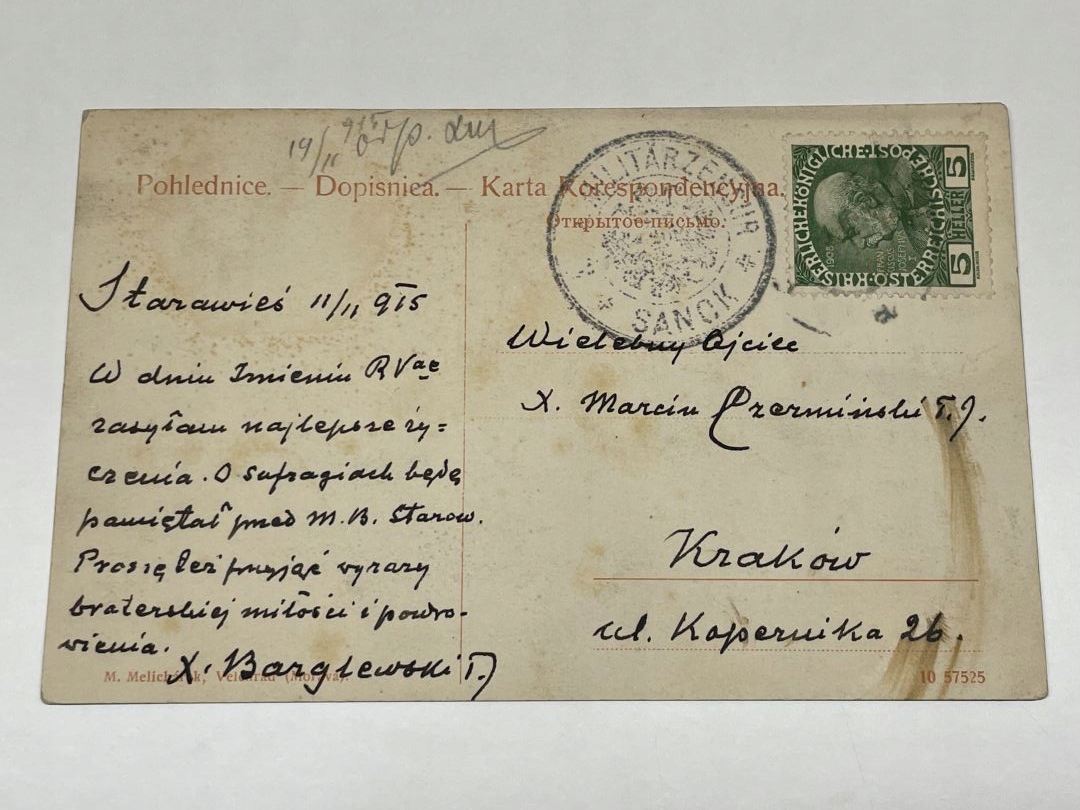 19/11
Pohlednice. — Dopisnica. — Karta Korespondencyjna.
Открытое письмо.
MILITÄRZENSUR
SANOK
KAISERLICHEKÖNIGLICHE
ÖSTERREICHISCHEPOST
1908
5 HELLER 5
Starawieś 11/11 915
W dniu Imieniu RVae
zasyłam najlepsze ży=
czenia. O sufragiach będę
pamiętał przed M.B. Starow.
Proszę też przyjąć wyrazy
braterskiej miłości i pozdro-
wienia.
X. Barglewski T.J
Wielebny Ojciec
X. Marcin Czermiński T.J.
Kraków
ul. Kopernika 26.
M. Melichárek, Velehrad (Morava).
10 57525